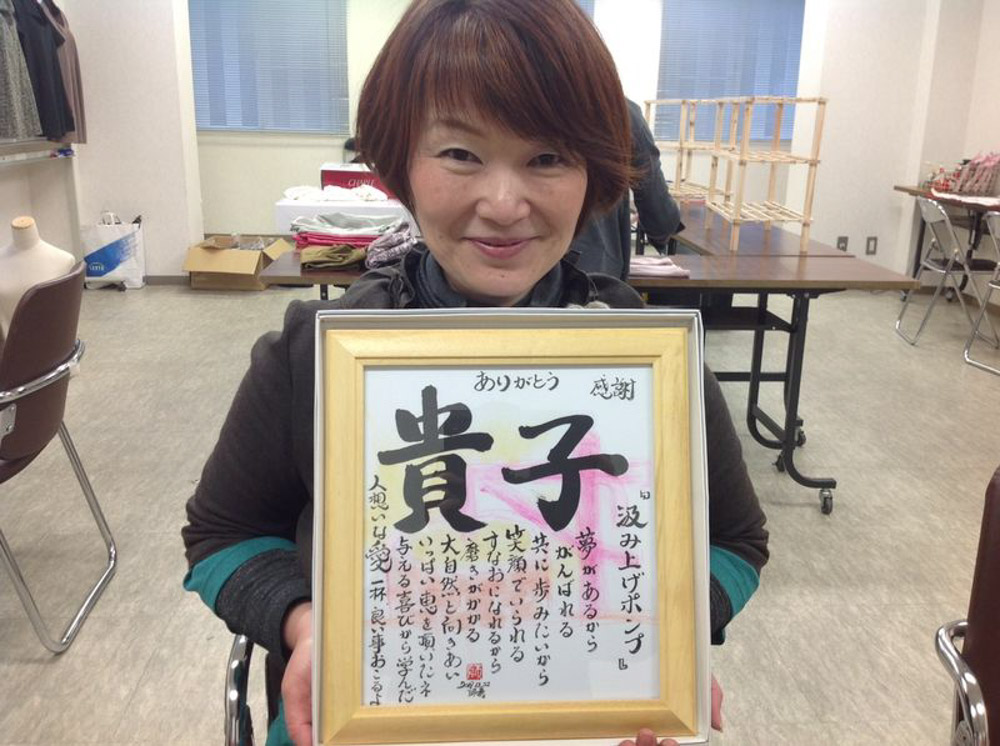 ありがとう
感謝
貴子
『汲み上げポンプ』
夢があるから
がんばれる
共に歩みたいから
笑顔でいられる
すなおになれるから
磨きがかかる
大自然と向きあい
いっぱい恵を頂いたネ
与える喜びから学んだ
人想いな愛一杯良い事おこるよ